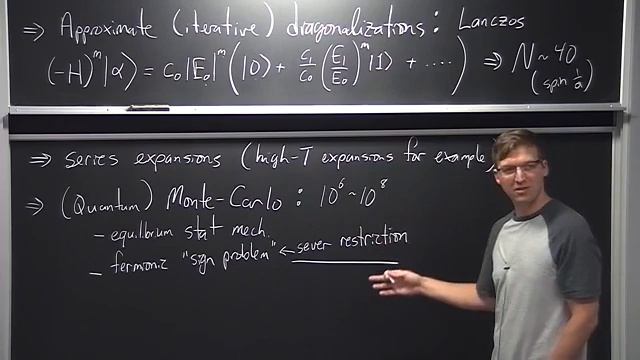 ⇒ Approximate (iterative) diagonalizations : Lanczos
(-H)^m |α> = c₀|E₀|^m (|0> + c₁/c₀ (E₁/E₀)^m |1> + ....) ⇒ N ~ 40
(spin 1/2)
⇒ series expansions (high-T expansions for example)
⇒ (Quantum) Monte-Carlo : 10^6 ~ 10^8
- equilibrium stat mech.
- fermionic "sign problem" ← sever restriction